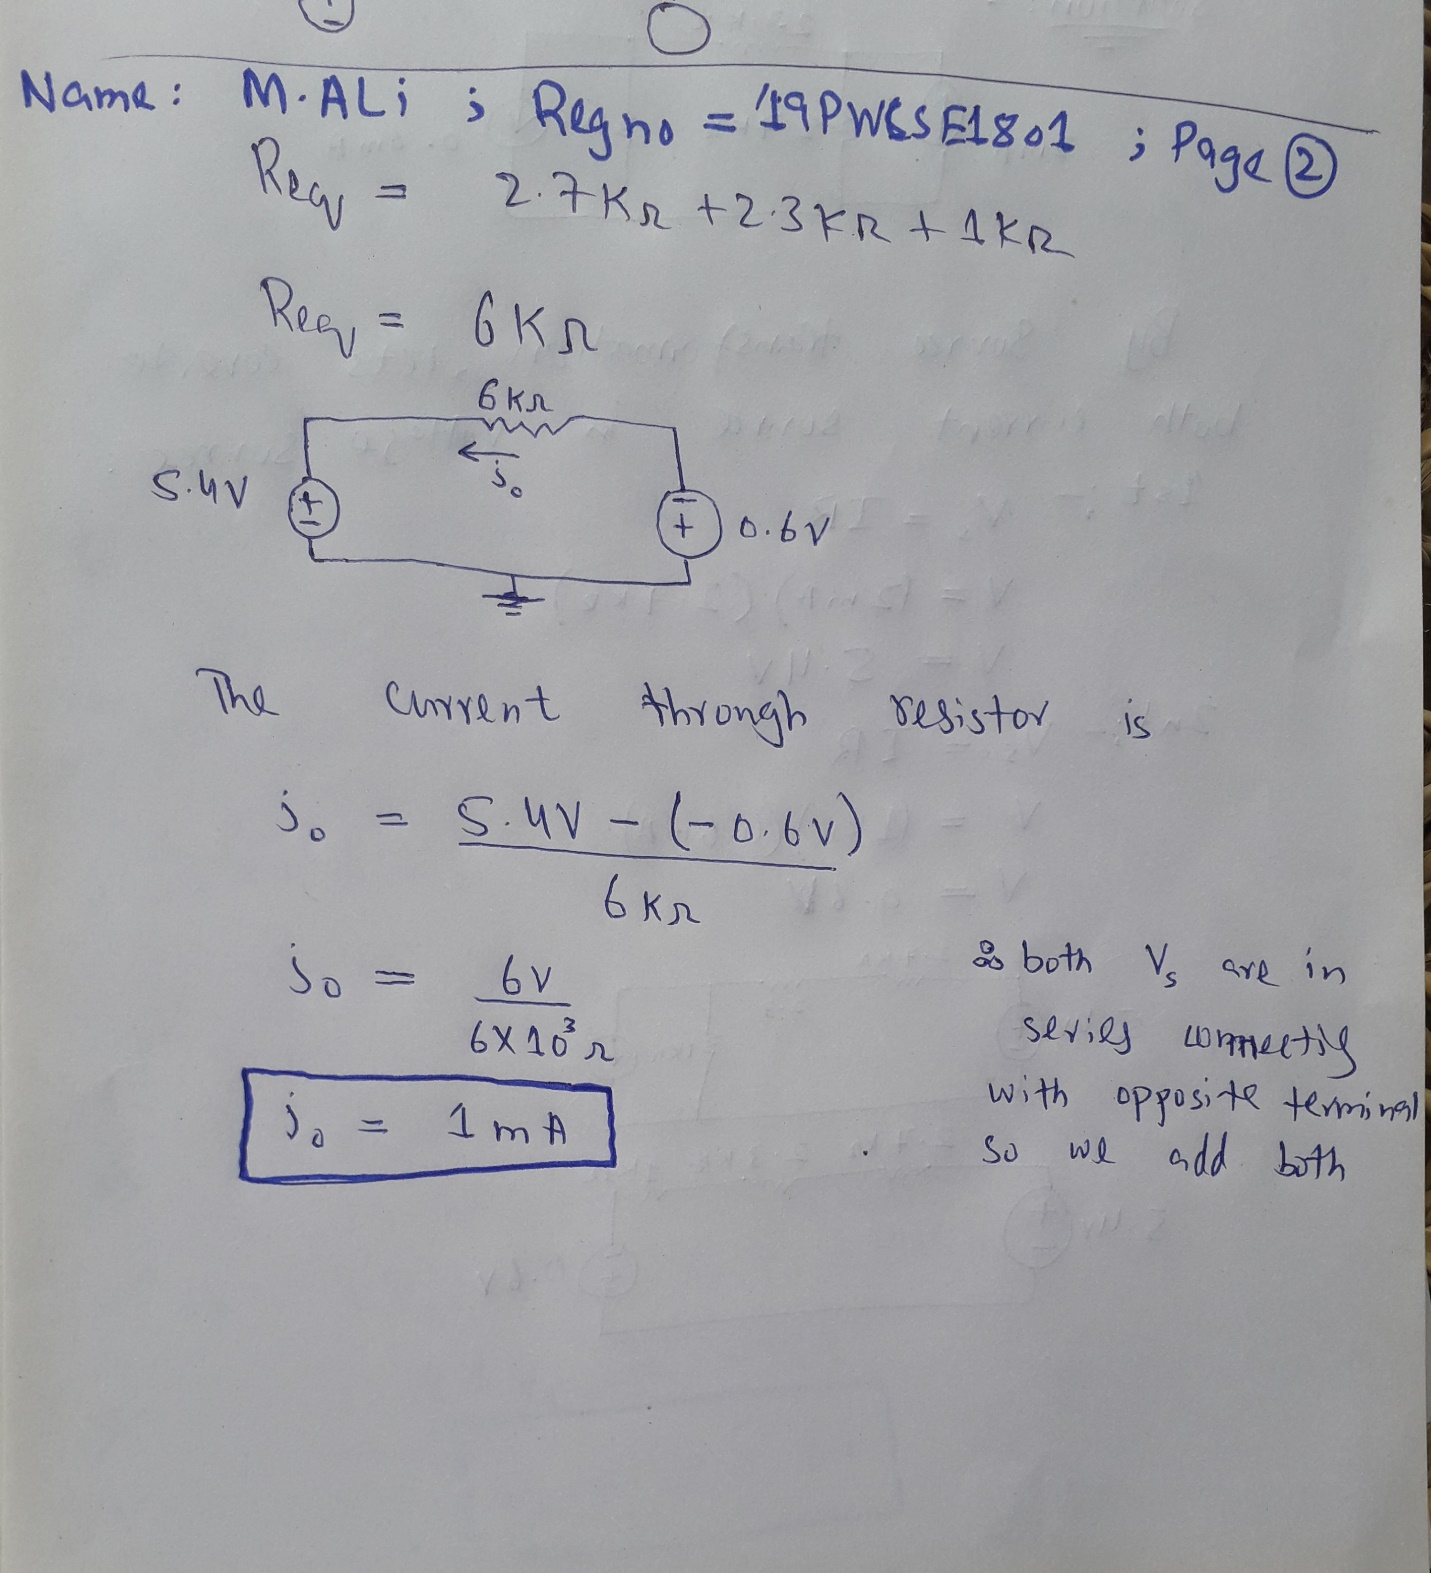 Name: M.ALi ; Reg no = '19PWCSE1801 ; Page ②
Req = 2.7KΩ +2.3KΩ + 1KΩ
Req = 6KΩ
6KΩ
i₀
5.4V
+
−
−
+
0.6V
The current through resistor is
i₀ = 5.4V − (−0.6V)
6KΩ
i₀ = 6V
6×10³Ω
i₀ = 1mA
both Vs are in
series
with opposite terminal
so we add both